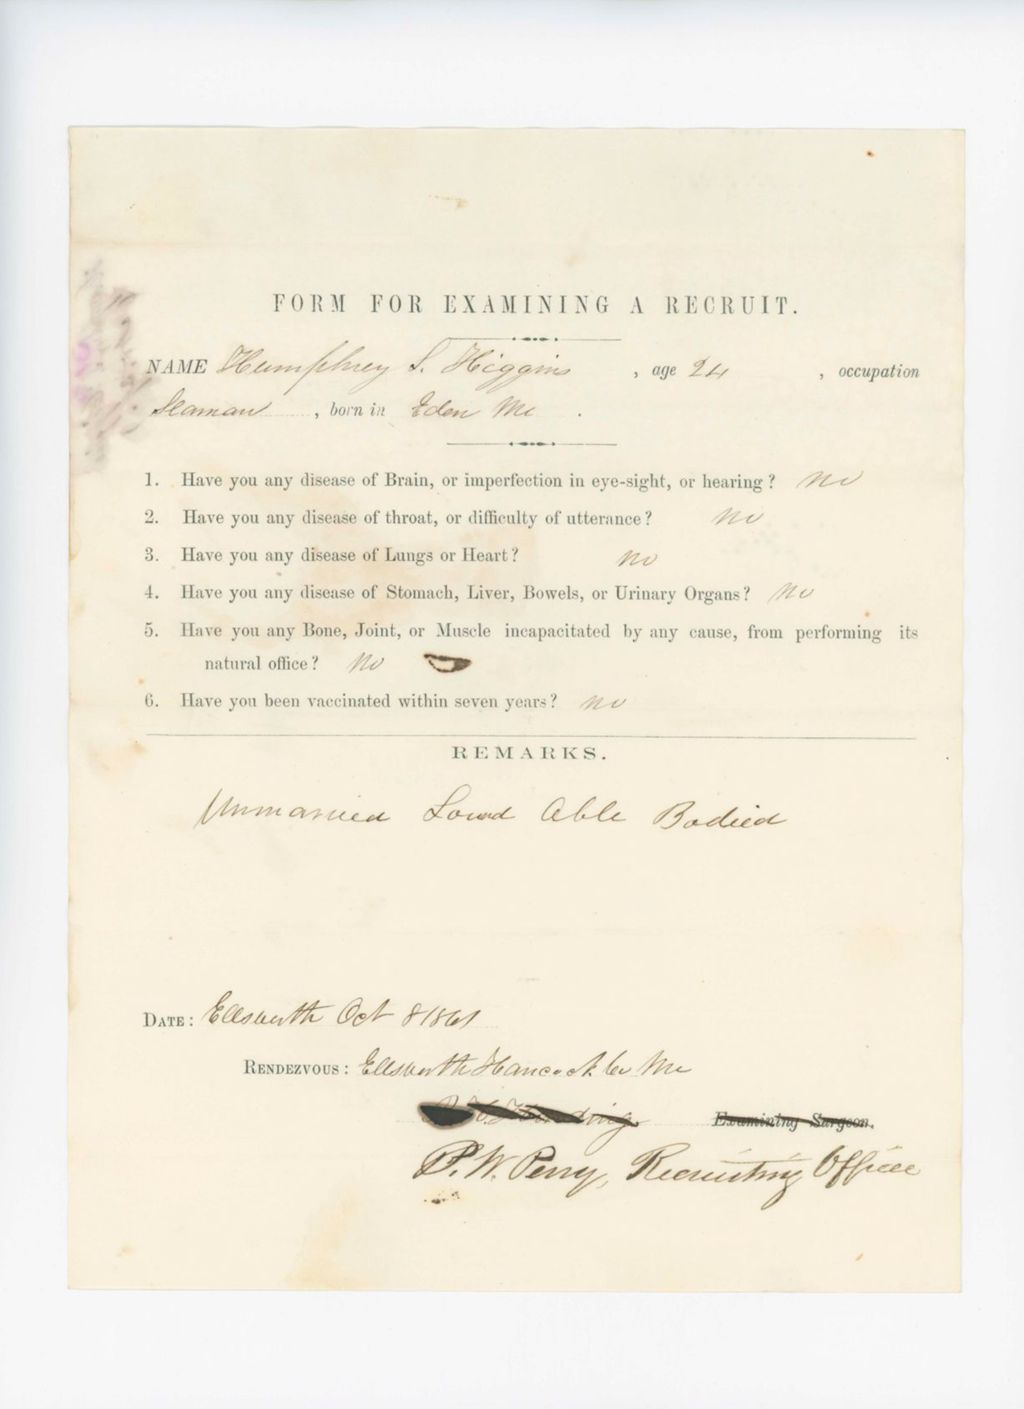 FORM FOR EXAMINING A RECRUIT.
NAME Humphrey S. Higgins, age 24, occupation
Seaman, born in Eden Me.
1. Have you any disease of Brain, or imperfection in eye-sight, or hearing? No
2. Have you any disease of throat, or difficulty of utterance? No
3. Have you any disease of Lungs or Heart? No
4. Have you any disease of Stomach, Liver, Bowels, or Urinary Organs? No
5. Have you any Bone, Joint, or Muscle incapacitated by any cause, from performing its
natural office? No
6. Have you been vaccinated within seven years? No
REMARKS.
Unmarried Sound Able Bodied
DATE: Ellsworth Oct 8 1861
RENDEZVOUS: Ellsworth Hancock Co Me
Examining Surgeon.
P. W. Perry, Recruiting Officer